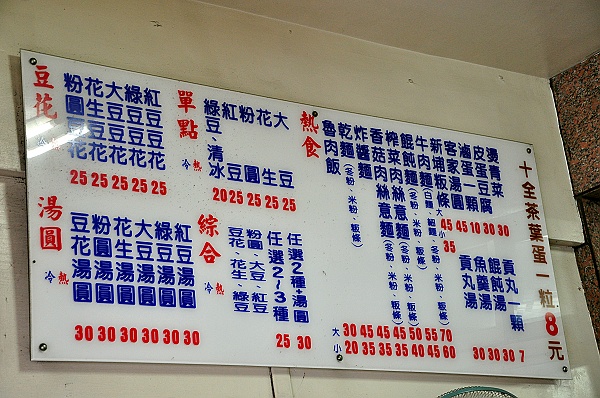 豆花
粉圓豆花
花生豆花
大豆豆花
綠豆豆花
紅豆豆花
冷 熱
25 25 25 25 25
單點
綠豆、清冰
紅豆
粉圓
花生
大豆
冷 熱
20 25 25 25 25
湯圓
豆花湯圓
粉圓湯圓
花生湯圓
大豆湯圓
綠豆湯圓
紅豆湯圓
冷 熱
30 30 30 30 30 30
綜合
豆花、花生、綠豆
粉圓、大豆、紅豆
任選2~3種
任選2種+湯圓
冷 熱
25 30
熱食
魯肉飯
乾麵(冬粉、米粉、粄條)
炸醬麵
香菇肉絲意麵
榨菜肉絲意麵(冬粉、米粉、粄條)
餛飩麵(冬粉、米粉、粄條)
牛肉麵(白麵、細麵、冬粉、米粉、粄條)
大 30 45 45 45 50 55 70
小 20 35 35 35 40 45 60
新埔粄條
客家湯圓
滷蛋一顆
皮蛋豆腐
燙青菜
大 45 45 10 30 30
小 35
貢丸湯
魚羹湯
餛飩湯
貢丸一顆
30 30 30 7
十全茶葉蛋一粒8元